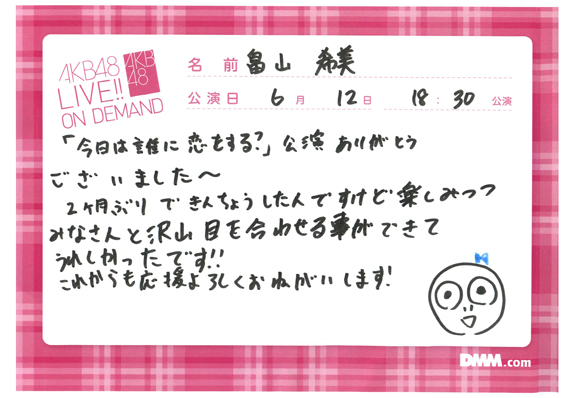 AKB48
LIVE!!
ON DEMAND
AKB
48
名前 畠山 希美
公演日 6月 12日 18:30 公演
「今日は誰に恋をする?」公演 ありがとう
ございました〜
2ヶ月ぶりできんちょうしたんですけど楽しみつつ
みなさんと沢山目を合わせる事ができて
うれしかったです!!
これからも応援よろしくおねがいします!
DMM.com